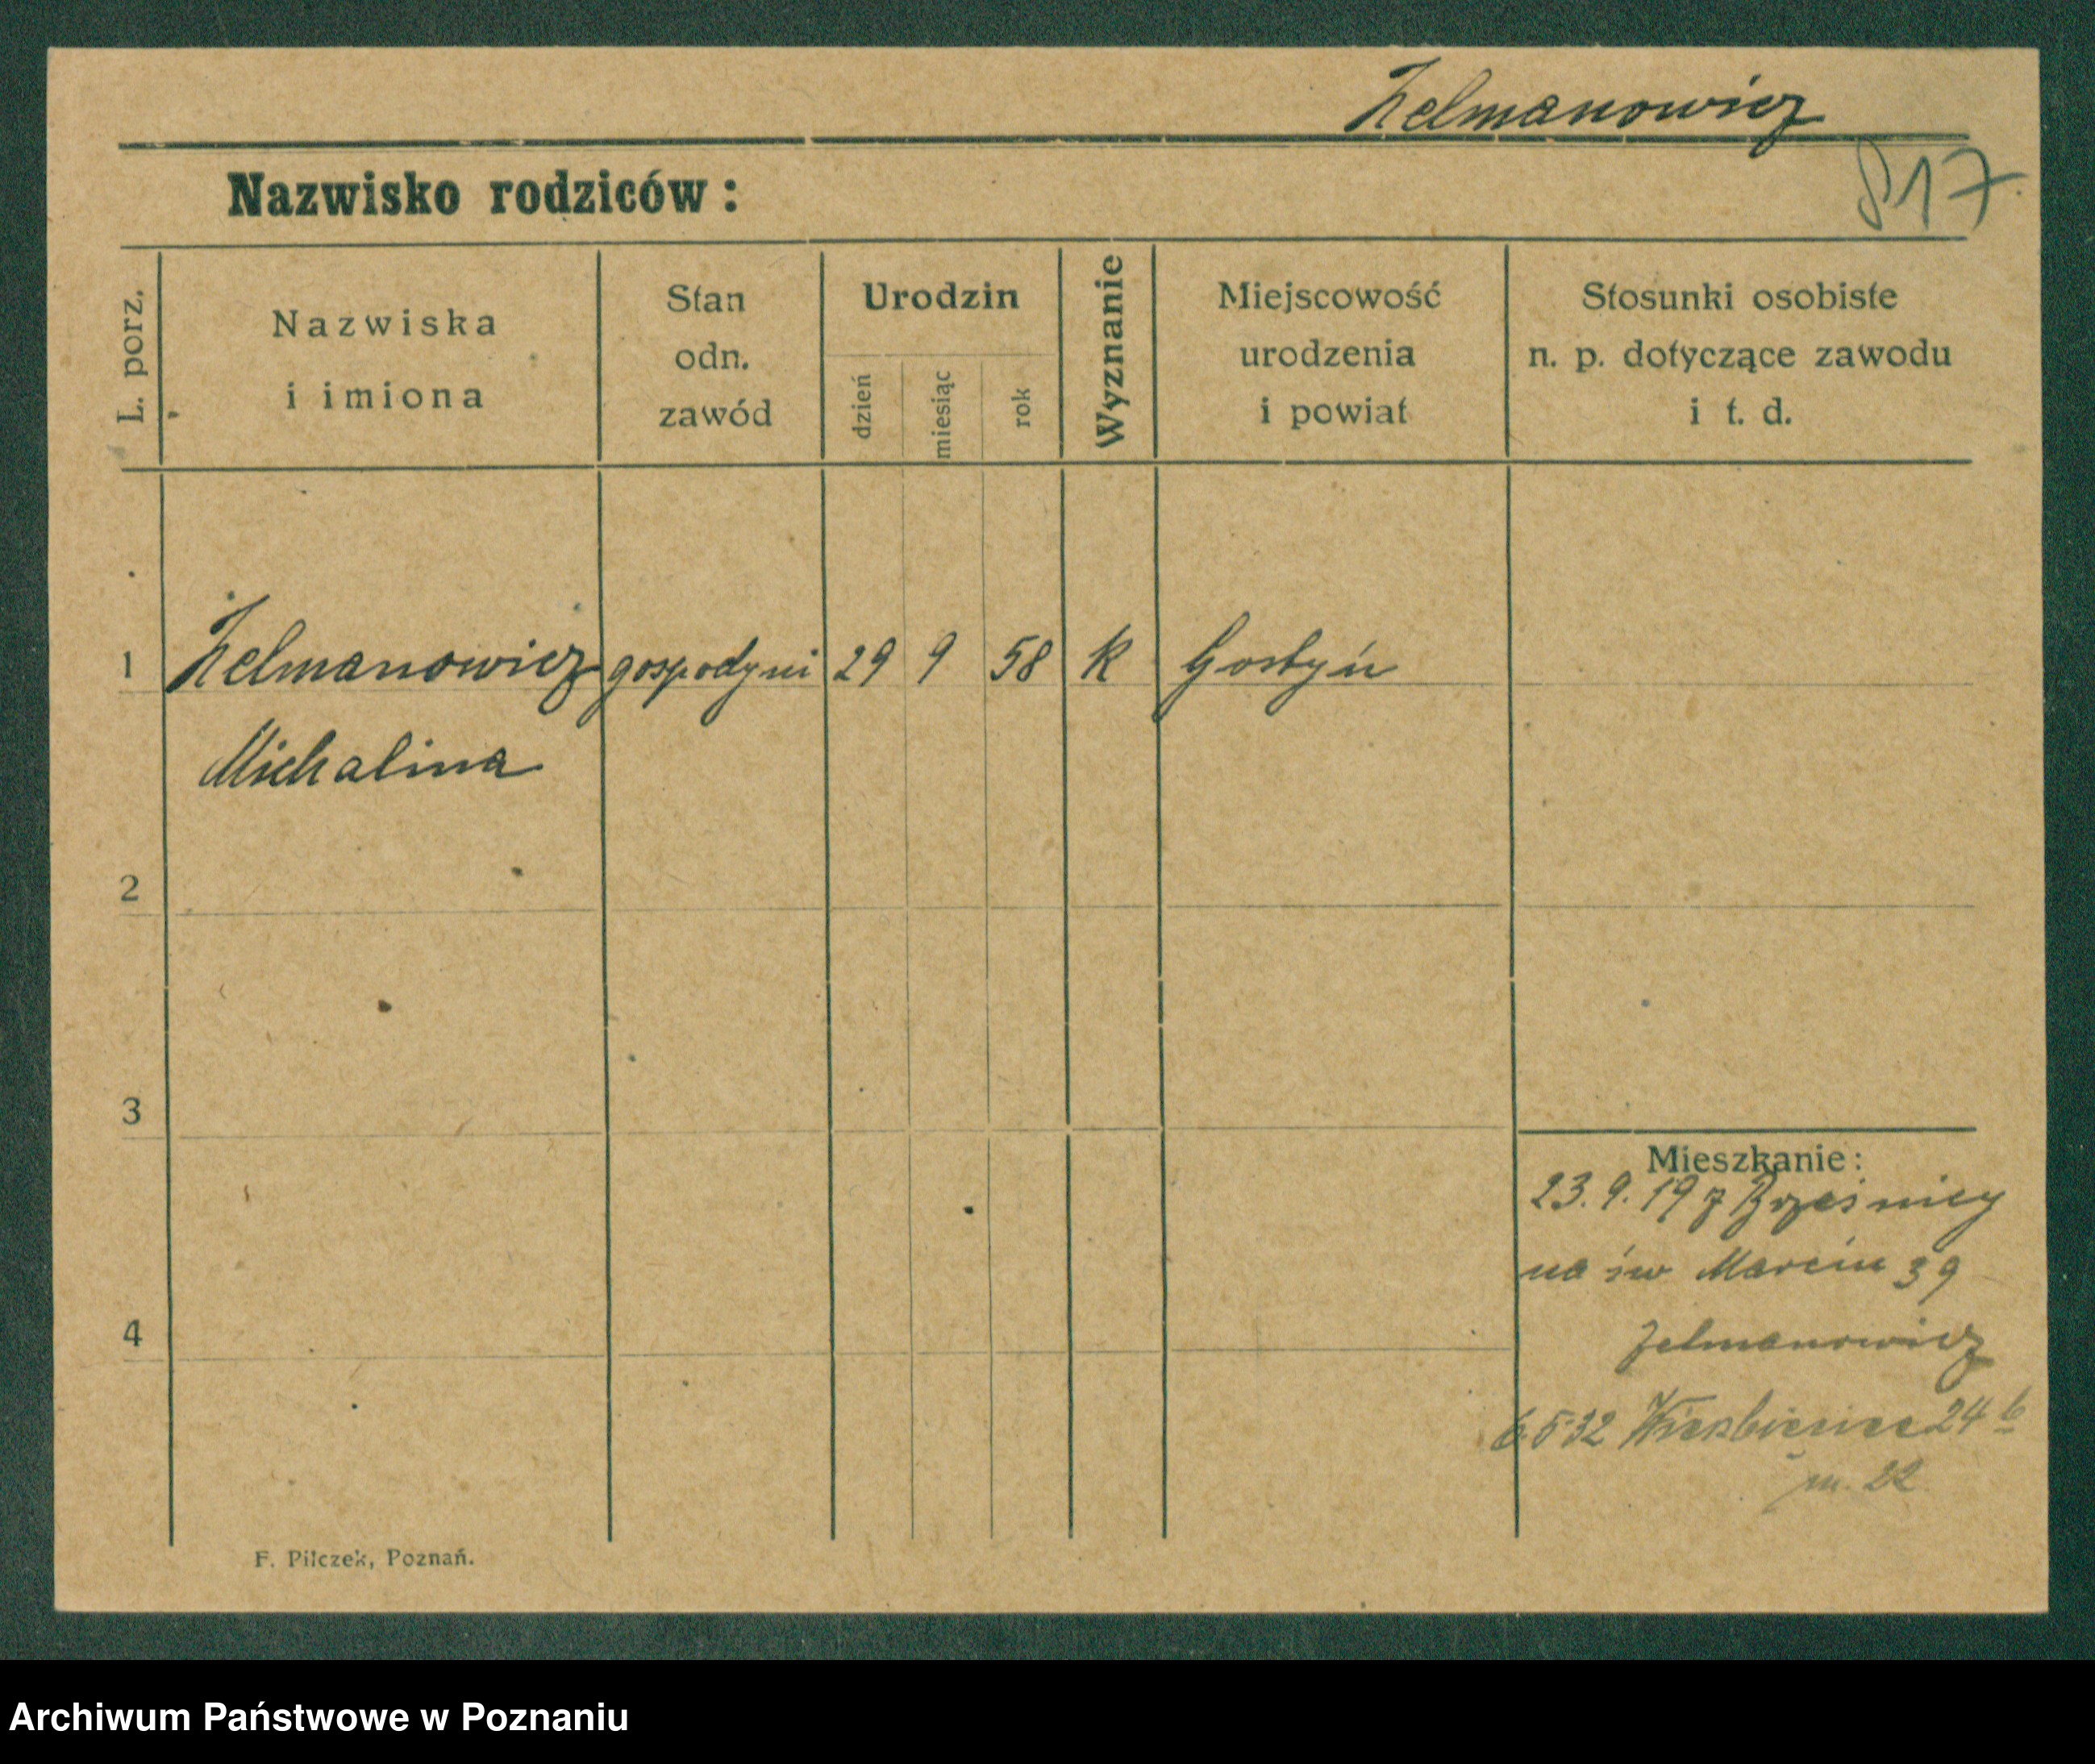 Żelmanowicz
Nazwisko rodziców:
817.
L. porz.
Nazwiska
i imiona
Stan
odn.
zawód
Urodzin
dzień
miesiąc
rok
Wyznanie
Miejscowość
urodzenia
i powiat
Stosunki osobiste
n. p. dotyczące zawodu
i t. d.
1 Żelmanowicz gospodyni 29 9 58 k Gostyń
Michalina
2
3
4
Mieszkanie:
23. 9. 19 z Brześnicy
na św Marcin 39
Żelmanowicz
6.5 32 Wierzbięcice 24 b
m. 22
F. Pilczek, Poznań.
Archiwum Państwowe w Poznaniu